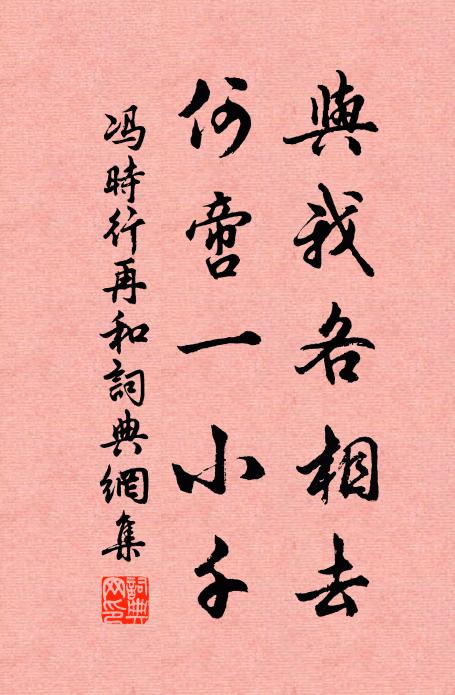 與我各相去
何啻一小千
冯時行再和詞典網集
詞典网印